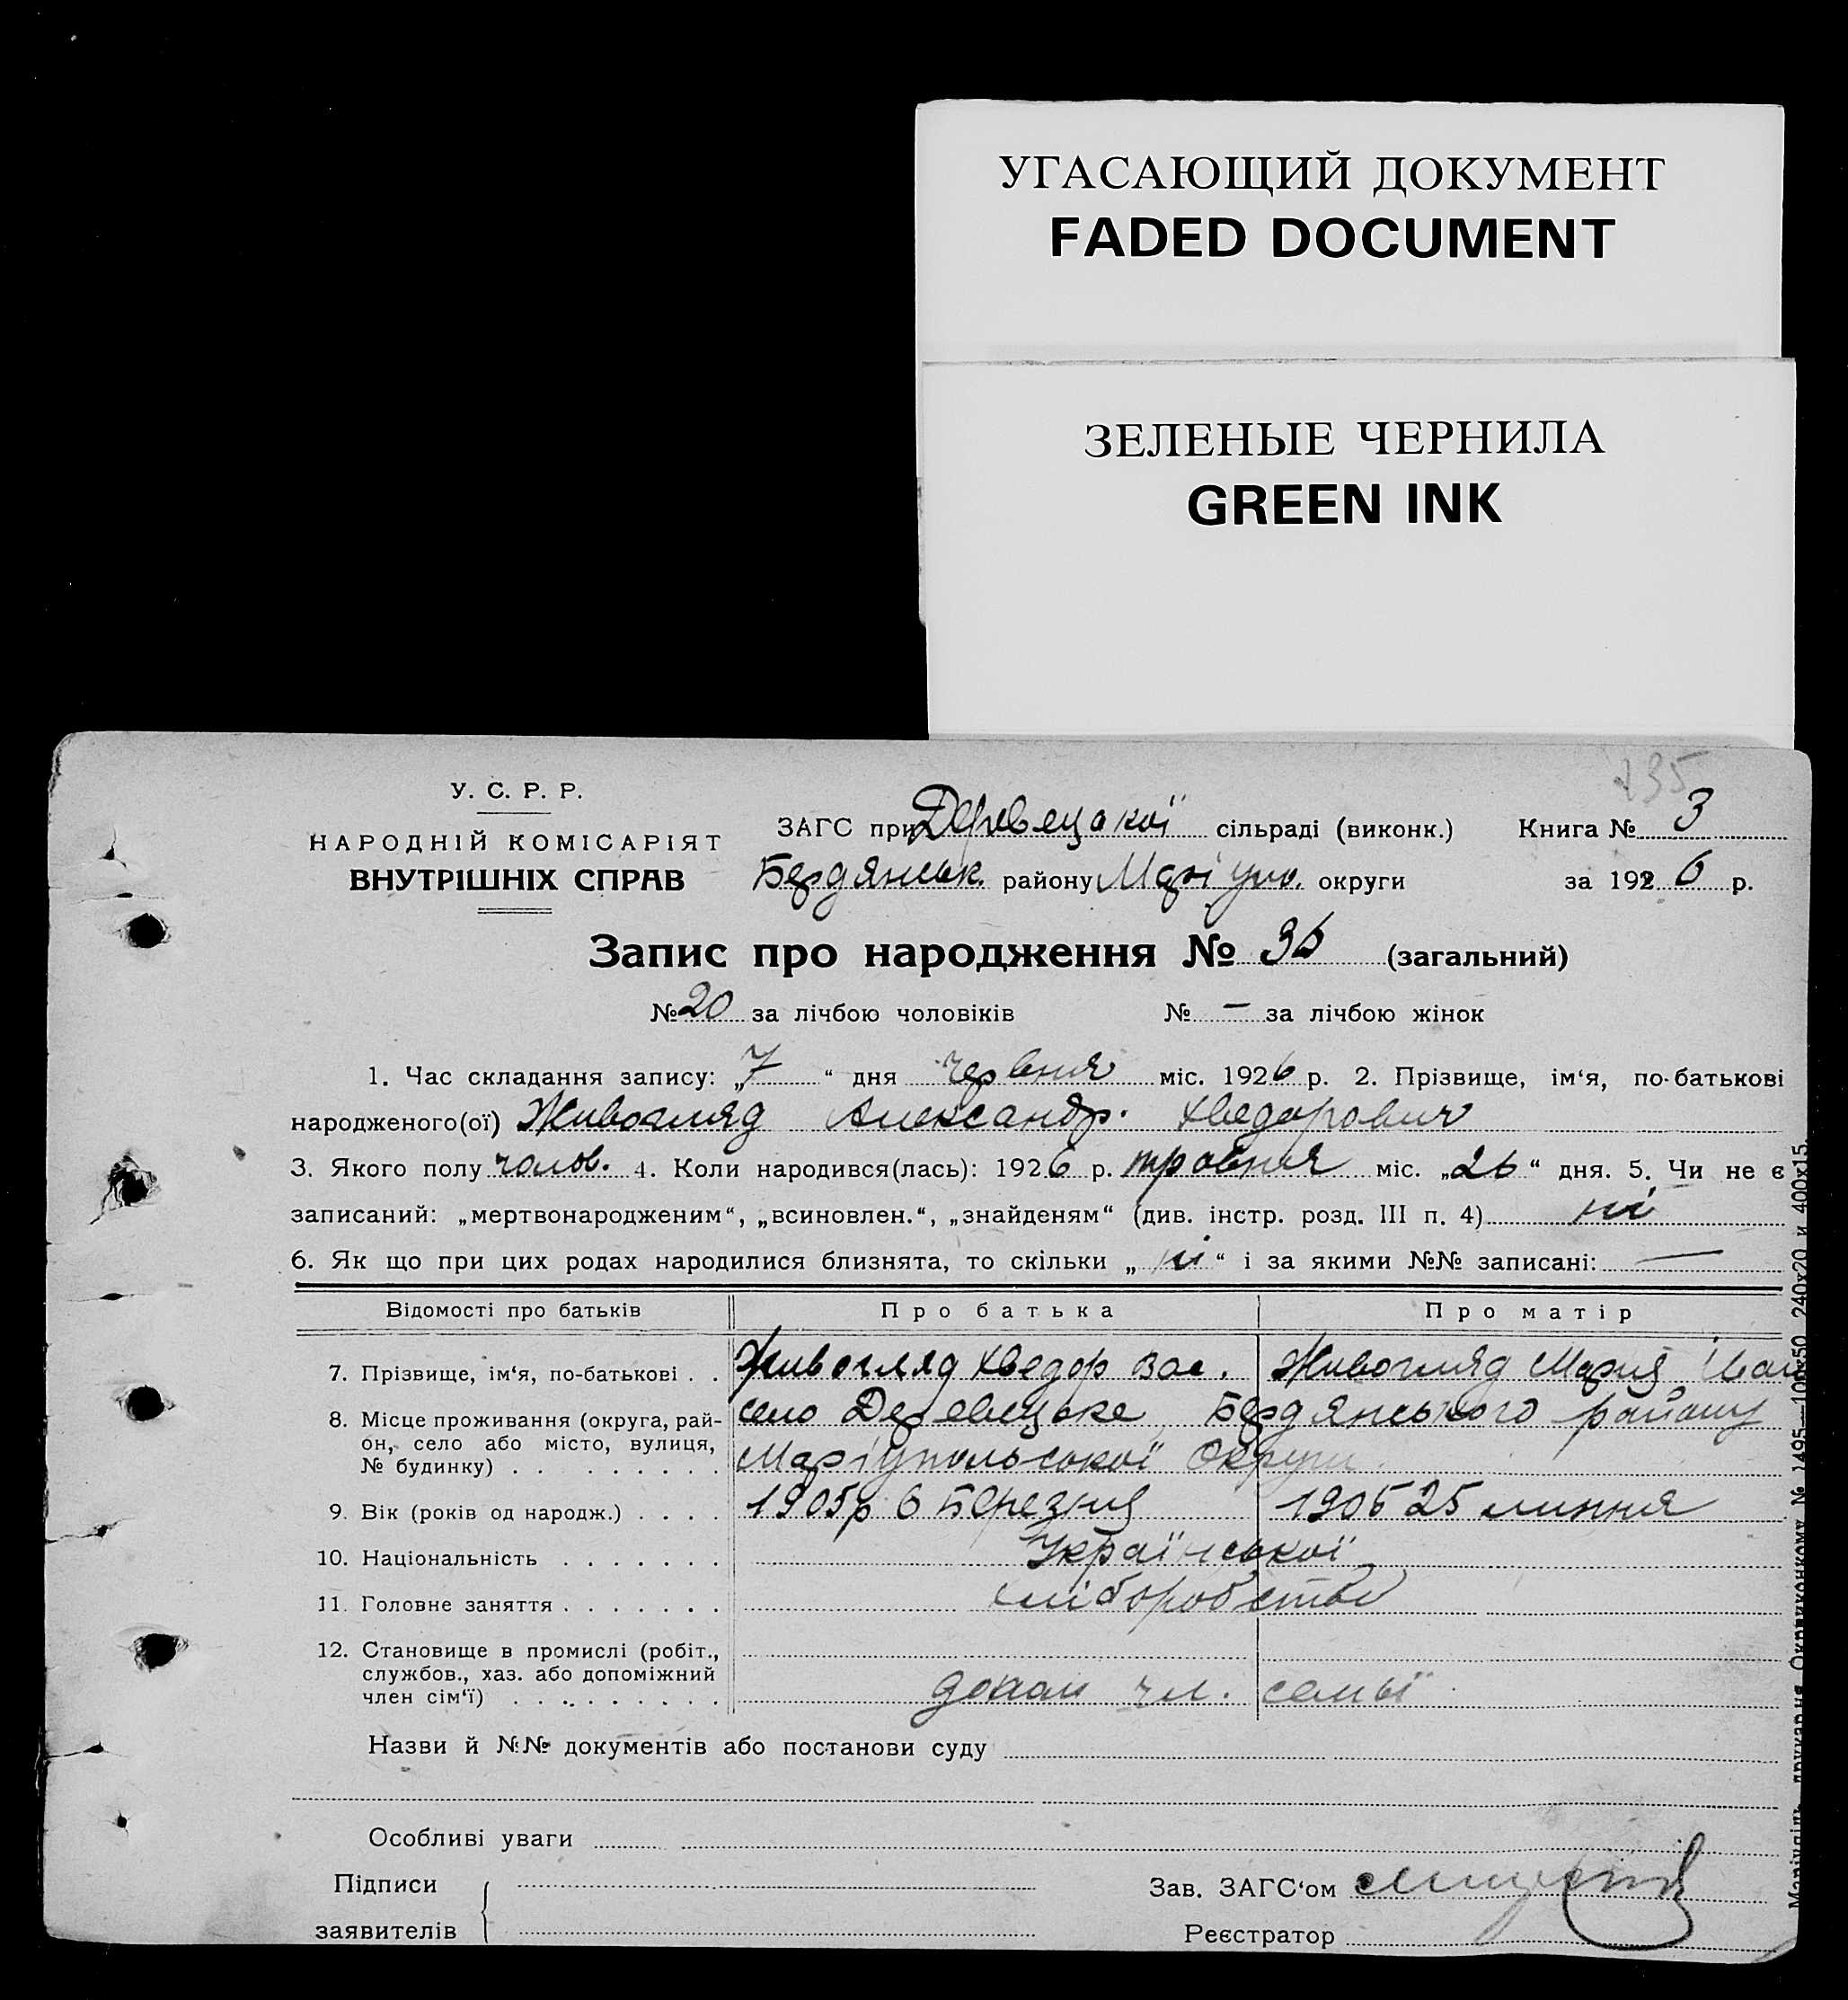 УГАСАЮЩИЙ ДОКУМЕНТ
FADED DOCUMENT
ЗЕЛЕНЫЕ ЧЕРНИЛА
GREEN INK
У. С. Р. Р.
НАРОДНІЙ КОМІСАРІЯТ
ВНУТРІШНІХ СПРАВ
ЗАГС при Деревецокої сільраді (виконк.) Книга № 3
Бердянськ. району Маріуп. округи за 1926 р.
Запис про народження № 36 (загальний)
№ 20 за лічбою чоловіків № — за лічбою жінок
1. Час складання запису: „7“ дня червня міс. 1926 р. 2. Прізвище, ім‘я, по-батькові
народженого(ої) Живогляд Александр. Хведорович
3. Якого полу чолов. 4. Коли народився(лась): 1926 р. травня міс. „26“ дня. 5. Чи не є
записаний: „мертвонародженим“, „всиновлен.“, „знайденям“ (див. інстр. розд. III п. 4) ні
6. Як що при цих родах народилися близнята, то скільки „ні“ і за якими №№ записані: —
Відомості про батьків Про батька Про матір
7. Прізвище, ім‘я, по-батькові . . Живогляд Хведор Вас. Живогляд Мария Іван
8. Місце проживання (округа, рай-
он, село або місто, вулиця,
№ будинку) . . . . . . . . .
село Деревецьке Бердянського району
Маріупольської Округи
9. Вік (років од народж.) . . . . 1905р 6 Березня 1905 25 липня
10. Національність . . . . . . . Української
11. Головне заняття . . . . . . . хліборобство
12. Становище в промислі (робіт.,
службов., хаз. або допоміжний
член сім‘ї) . . . . . . . . .
допом чл. семьї
Назви й №№ документів або постанови суду
Особливі уваги
Підписи
заявителів
Зав. ЗАГС‘ом
Реєстратор
Маріупіль, друкарня Окрвиконкому. № 1495—100х50 240х20 и 400х15.